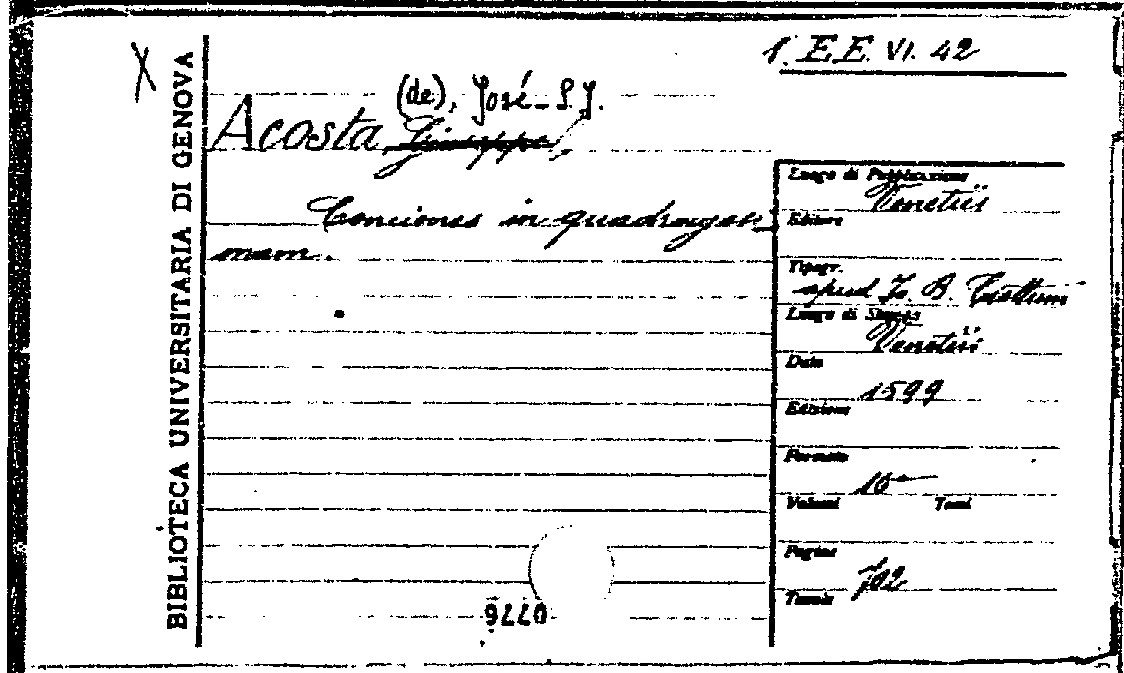 X
1. E.E. VI. 42
BIBLIOTECA UNIVERSITARIA DI GENOVA
(de), José - S.J.
Acosta, Giuseppe,
Conciones in quadragesi
mam.
Luogo di Pubblicazione
Venetiis
Editore
Tipogr.
apud Jo. B.
Luogo di Stampa
Venetiis
Data
1599
Edizione
Formato
16°
Volumi Tomi
Pagine
702
Tavole
0776